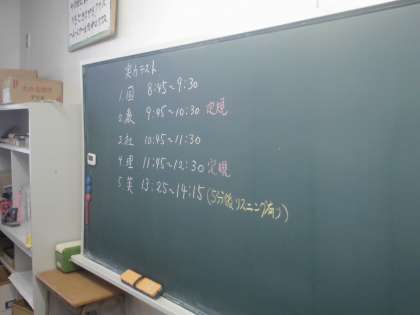 実力テスト
1.国 8:45~9:30
2.数 9:45~10:30 定規
3.社 10:45~11:30
4.理 11:45~12:30 定規
5.英 13:25~14:15 (5分後リスニング有り)